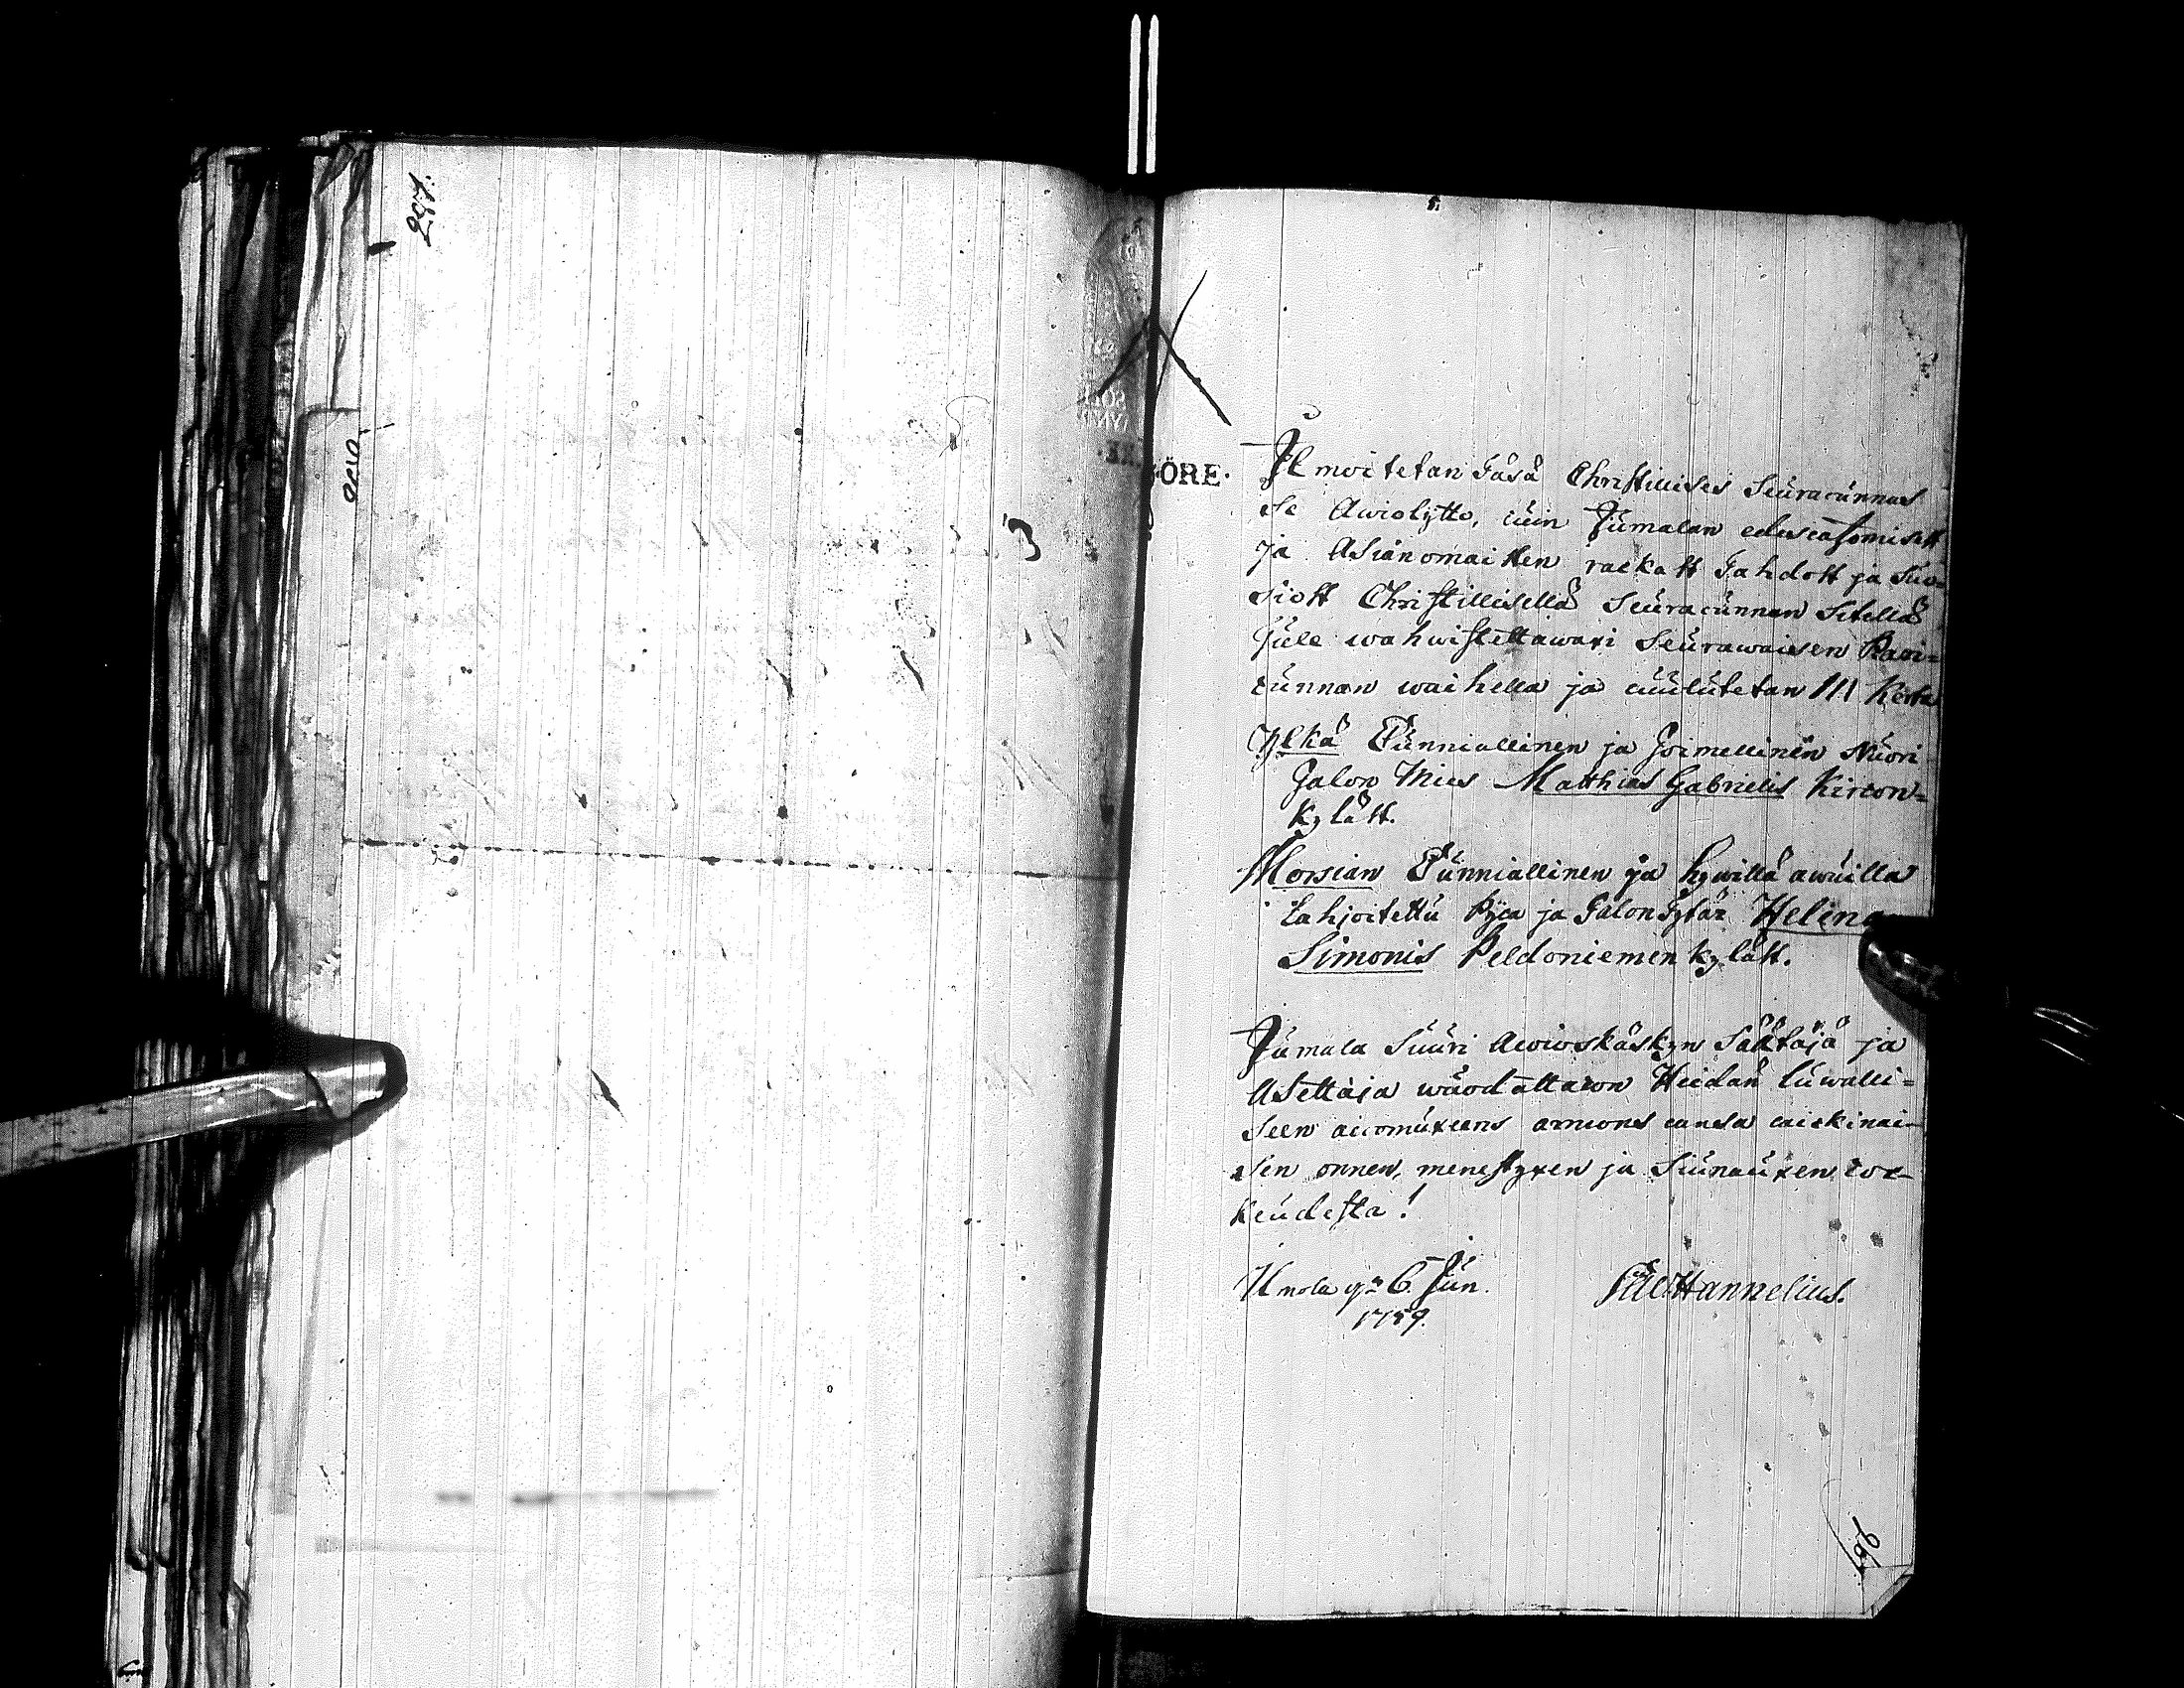 297.
3
ÖRE.
Ilmoitetan Täsä Christillises Seuracunnas
se Awiolijtto, cuin Jumalan edescatsomisest
ja Asianomaitten raekast Tahdost ja Suo-
siost Christillisellä Seuracunnan Sitellä
Tule wahwistettawaxi Seurawaisen Pari-
cunnan waihella ja cuulutetan III Kerta
Ylkä Cunniallinen ja Toimellinen Nuori
Talon Mies Matthias Gabrielis Kircon-
Kyläst.
Morsian Cunniallinen ja hywillä awuilla
Lahjoitettu Pijca ja Talon Tytär Helena
Simonis Peldoniemen kyläst.
Jumala Suuri Awioskäskyn Säätäjä ja
Asettaja wuodattacon Heidän luwalli-
seen aicomuxeens armons cansa caickinai-
sen onnen, menestyxen ja Siunauxen cor-
keudesta!
6. Jun.
1759.
Hannelius.
296